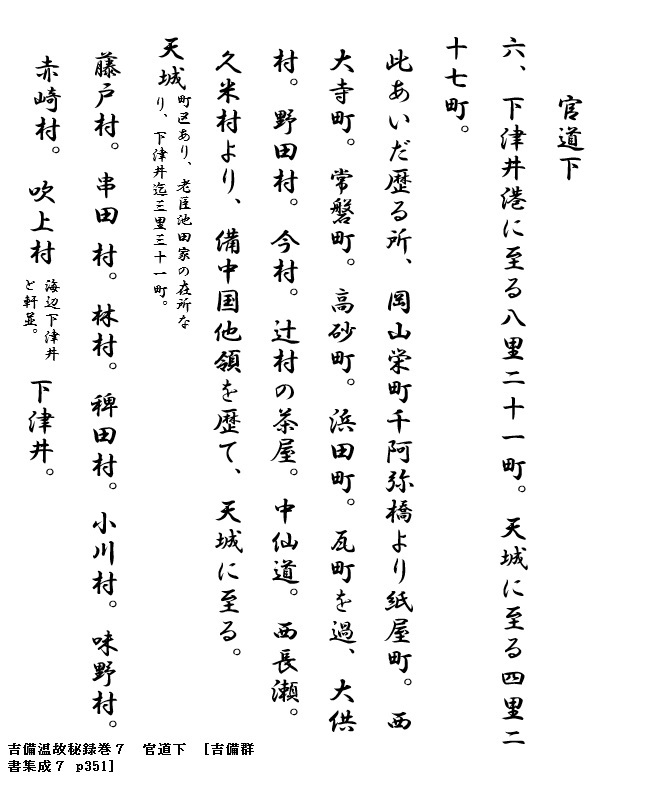 官道下
六、下津井港に至る八里二十一町。天城に至る四里二
十七町。
此あいだ歴る所、岡山栄町千阿弥橋より紙屋町。西
大寺町。常磐町。高砂町。浜田町。瓦町を過、大供
村。野田村。今村。辻村の茶屋。中仙道。西長瀬。
久米村より、備中国他領を歴て、天城に至る。
天城 町区あり、老臣池田家の在所な
り、下津井迄三里三十一町。
藤戸村。串田村。林村。稗田村。小川村。味野村。
赤崎村。吹上村 海辺下津井
と軒並。 下津井。
吉備温故秘録巻７　官道下　［吉備群
書集成７ p351］